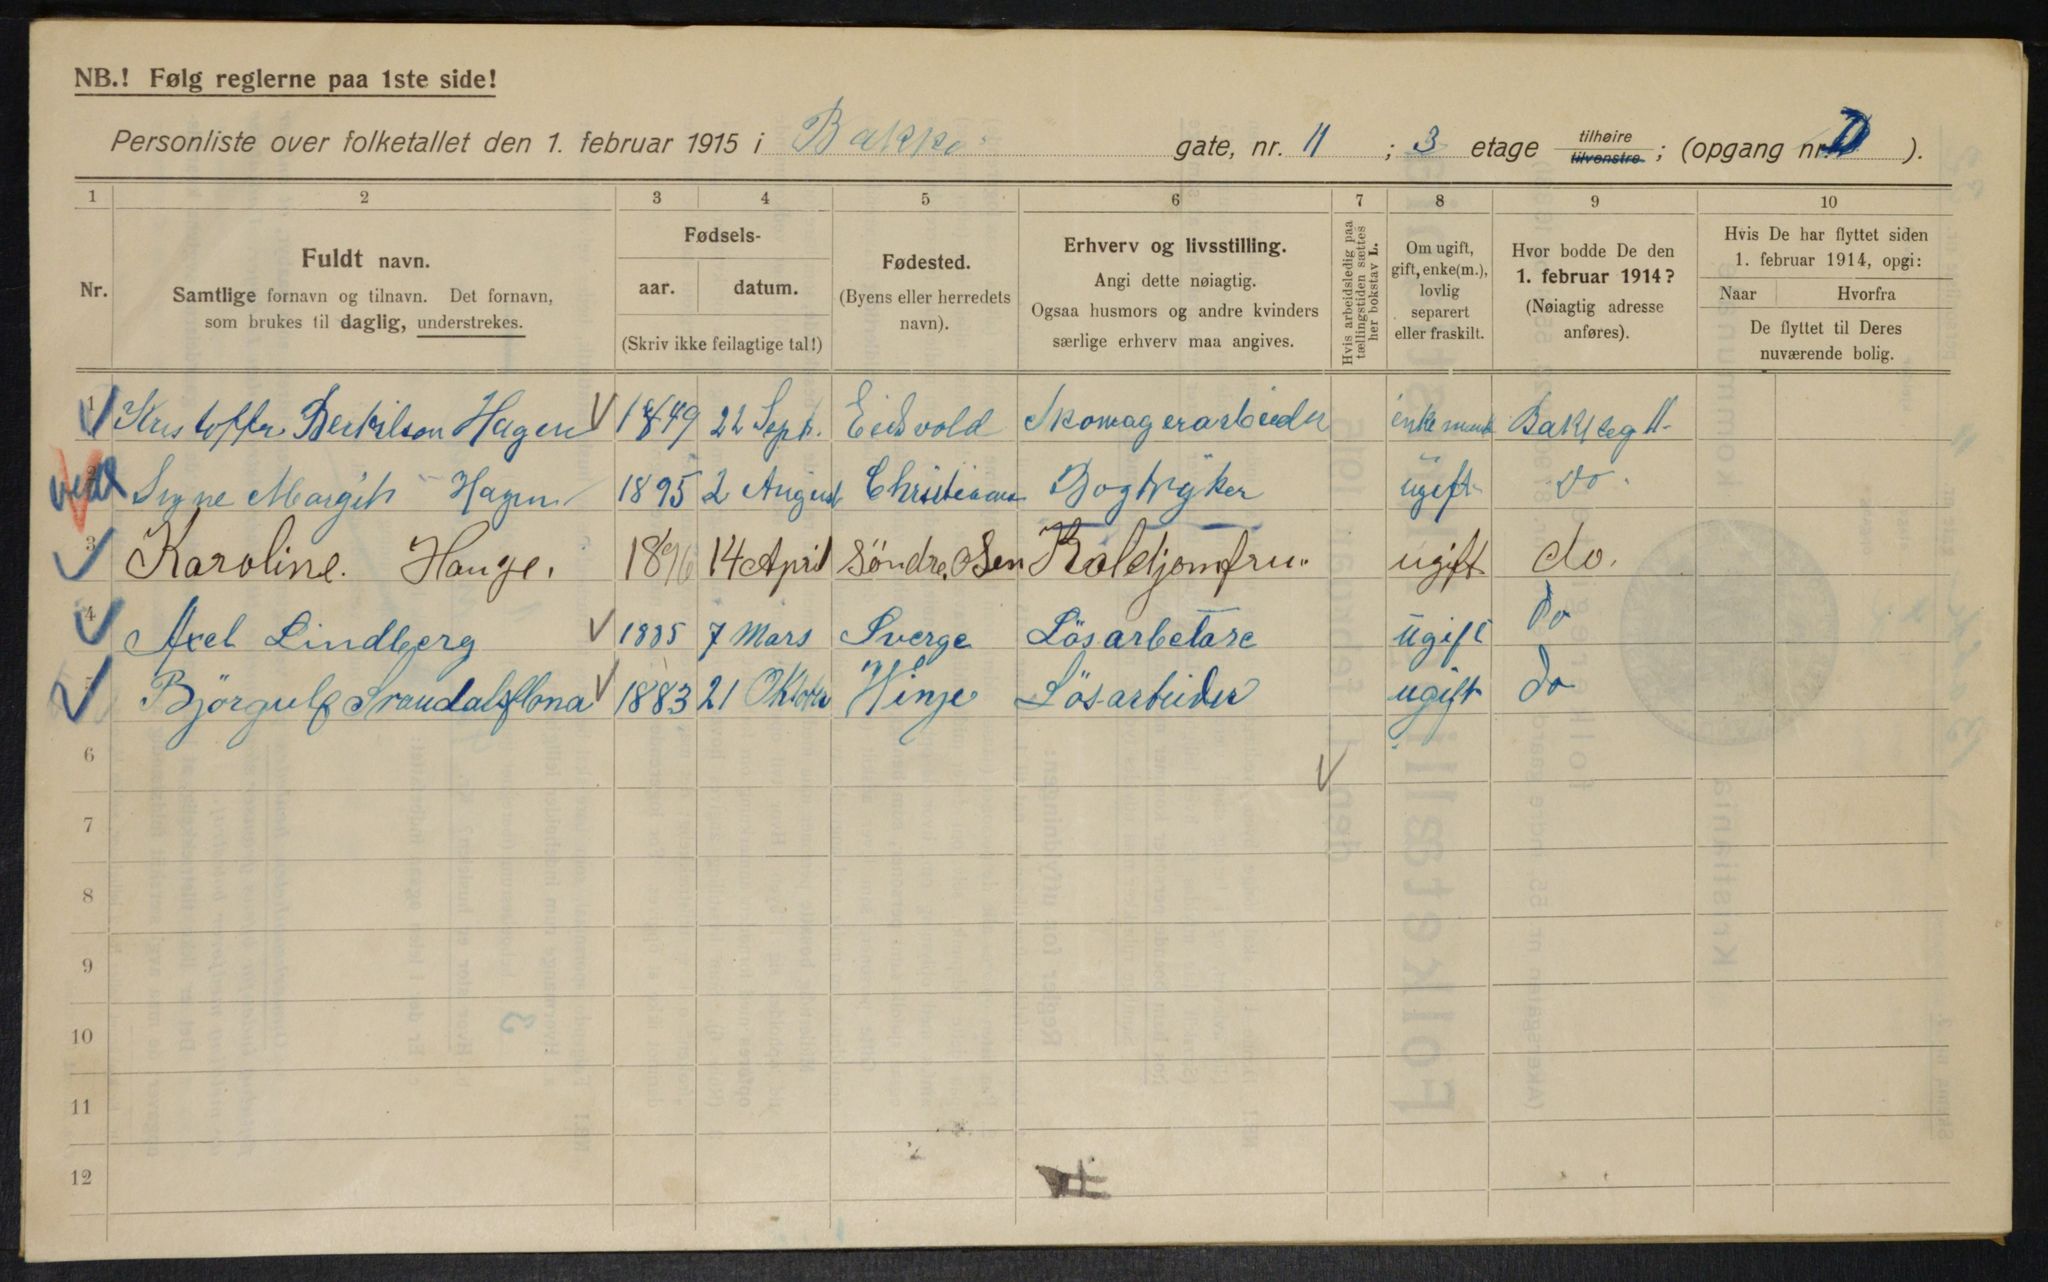 NB.! Følg reglerne paa 1ste side!
Personliste over folketallet den 1. februar 1915 i Bakke gate, nr. 11 ; 3 etage tilhøire tilvenstre ; (opgang nr. D ).
1 2 3 4 5 6 7 8 9 10
Nr.
Fuldt navn.
Samtlige fornavn og tilnavn. Det fornavn,
som brukes til daglig, understrekes.
Fødsels-
aar. datum.
(Skriv ikke feilagtige tal!)
Fødested.
(Byens eller herredets
navn).
Erhverv og livsstilling.
Angi dette nøiagtig.
Ogsaa husmors og andre kvinders
særlige erhverv maa angives.
Hvis arbeidsledig paa
tællingstiden sættes
her bokstav L.
Om ugift,
gift, enke(m.),
lovlig
separert
eller fraskilt.
Hvor bodde De den
1. februar 1914?
(Nøiagtig adresse
anføres).
Hvis De har flyttet siden
1. februar 1914, opgi:
Naar Hvorfra
De flyttet til Deres
nuværende bolig.
1 Kristoffer Hagen 1849 22 Sept. Eidsvold Skomagerarbeider enkemand Bakkeg 11
2 Signe Margit Hagen 1895 2 August Christiania ugift do.
3 Karoline. Hauge. 1896 14 April Søndre. Osen Koldjomfru. ugift do.
4 Axel Lindberg 1885 7 Mars Sverge Lösarbetare ugift do
5 Björgulf 1883 21 Oktober Vinje Lösarbeider ugift do
6
7
8
9
10
11
12